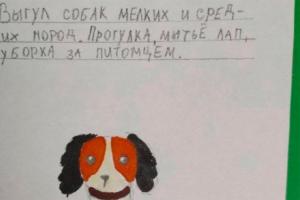 Выгул собак мелких и сред-
их пород. Прогулка, мытьё лап,
уборка за питомцем.